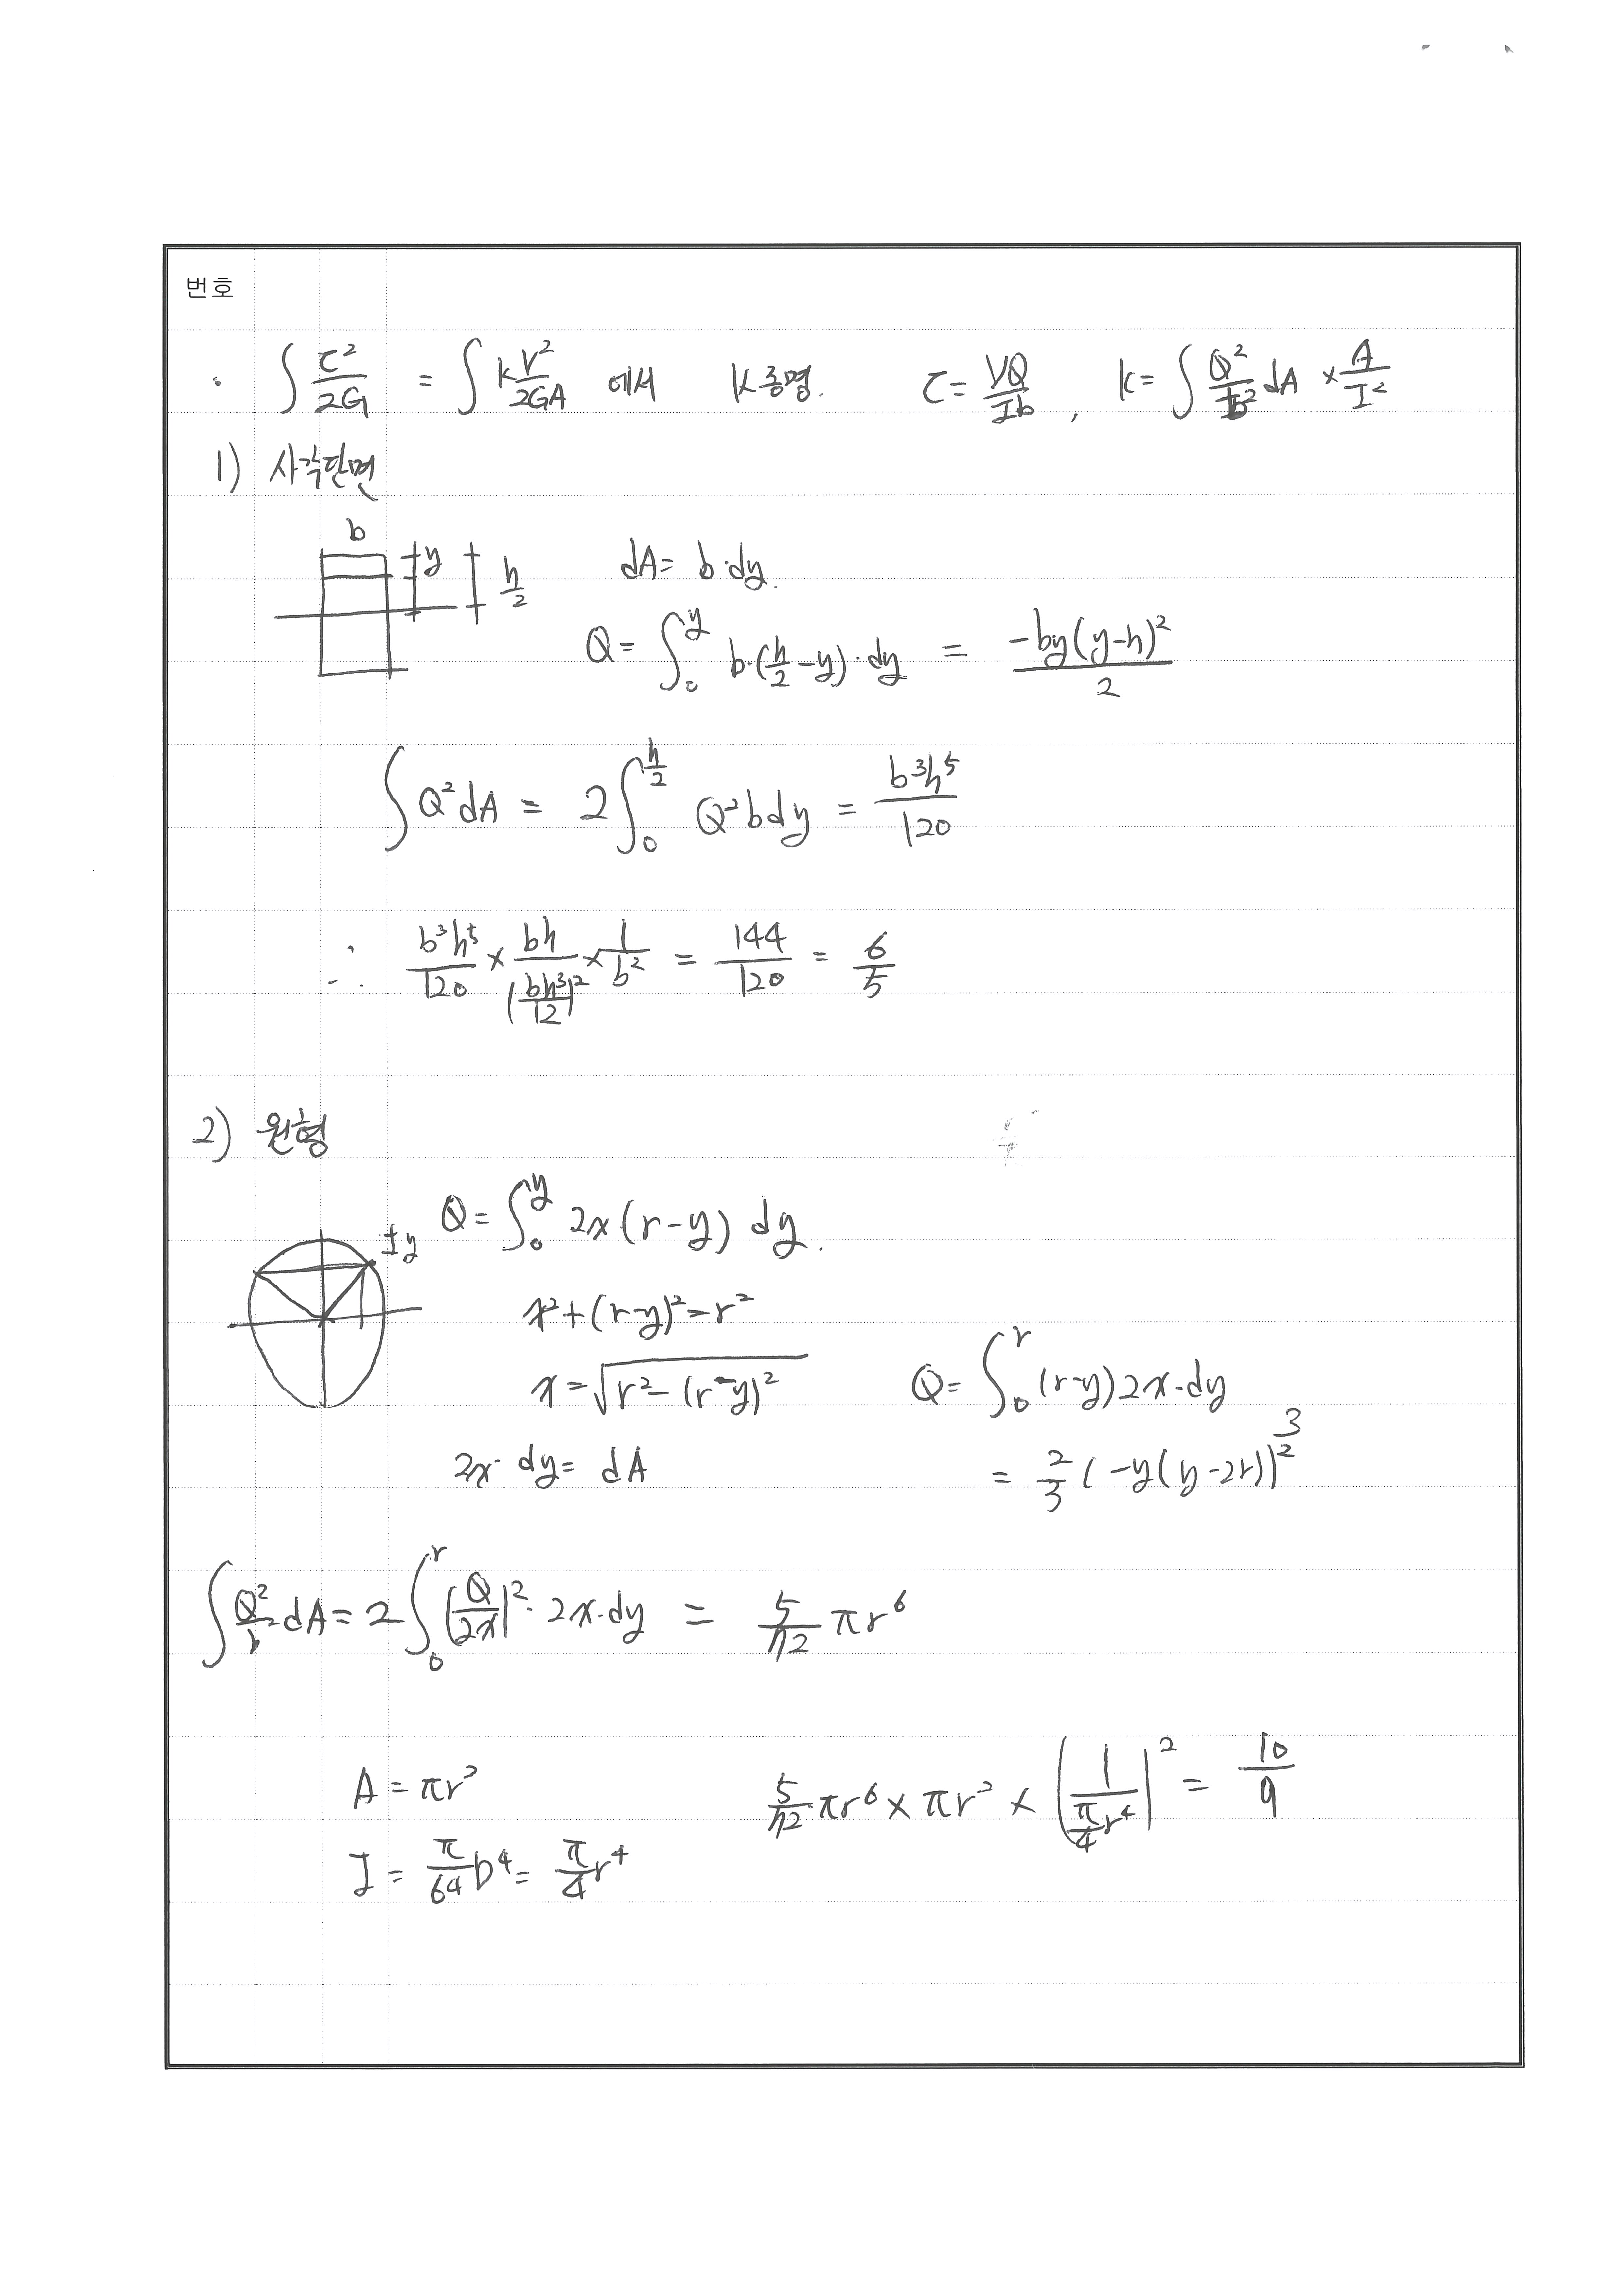 번호
· ∫ τ²/2G = ∫ k V²/2GA 에서 k증명. τ = VQ/Ib , k = ∫ Q²/b² dA × A/I²
1) 사각단면
b
y h/2 dA = b·dy.
Q = ∫₀^y b·(h/2 - y)·dy = -by(y-h)²/2
∫ Q²dA = 2∫₀^(h/2) Q²bdy = b³h⁵/120
∴ b³h⁵/120 × bh/(bh³/12)² × 1/b² = 144/120 = 6/5
2) 원형
Q = ∫₀^y 2x(r-y) dy.
y
x² + (r-y)² = r²
x = √(r² - (r-y)²) Q = ∫₀^r (r-y)2x·dy
2x· dy = dA = 2/3 (-y(y-2r))^(3/2)
∫ Q²/b² dA = 2∫₀^r (Q/2x)²· 2x·dy = 5/72 πr⁶
A = πr² 5/72 πr⁶ × πr² × (1/(π/4 r⁴))² = 10/9
I = π/64 D⁴ = π/4 r⁴